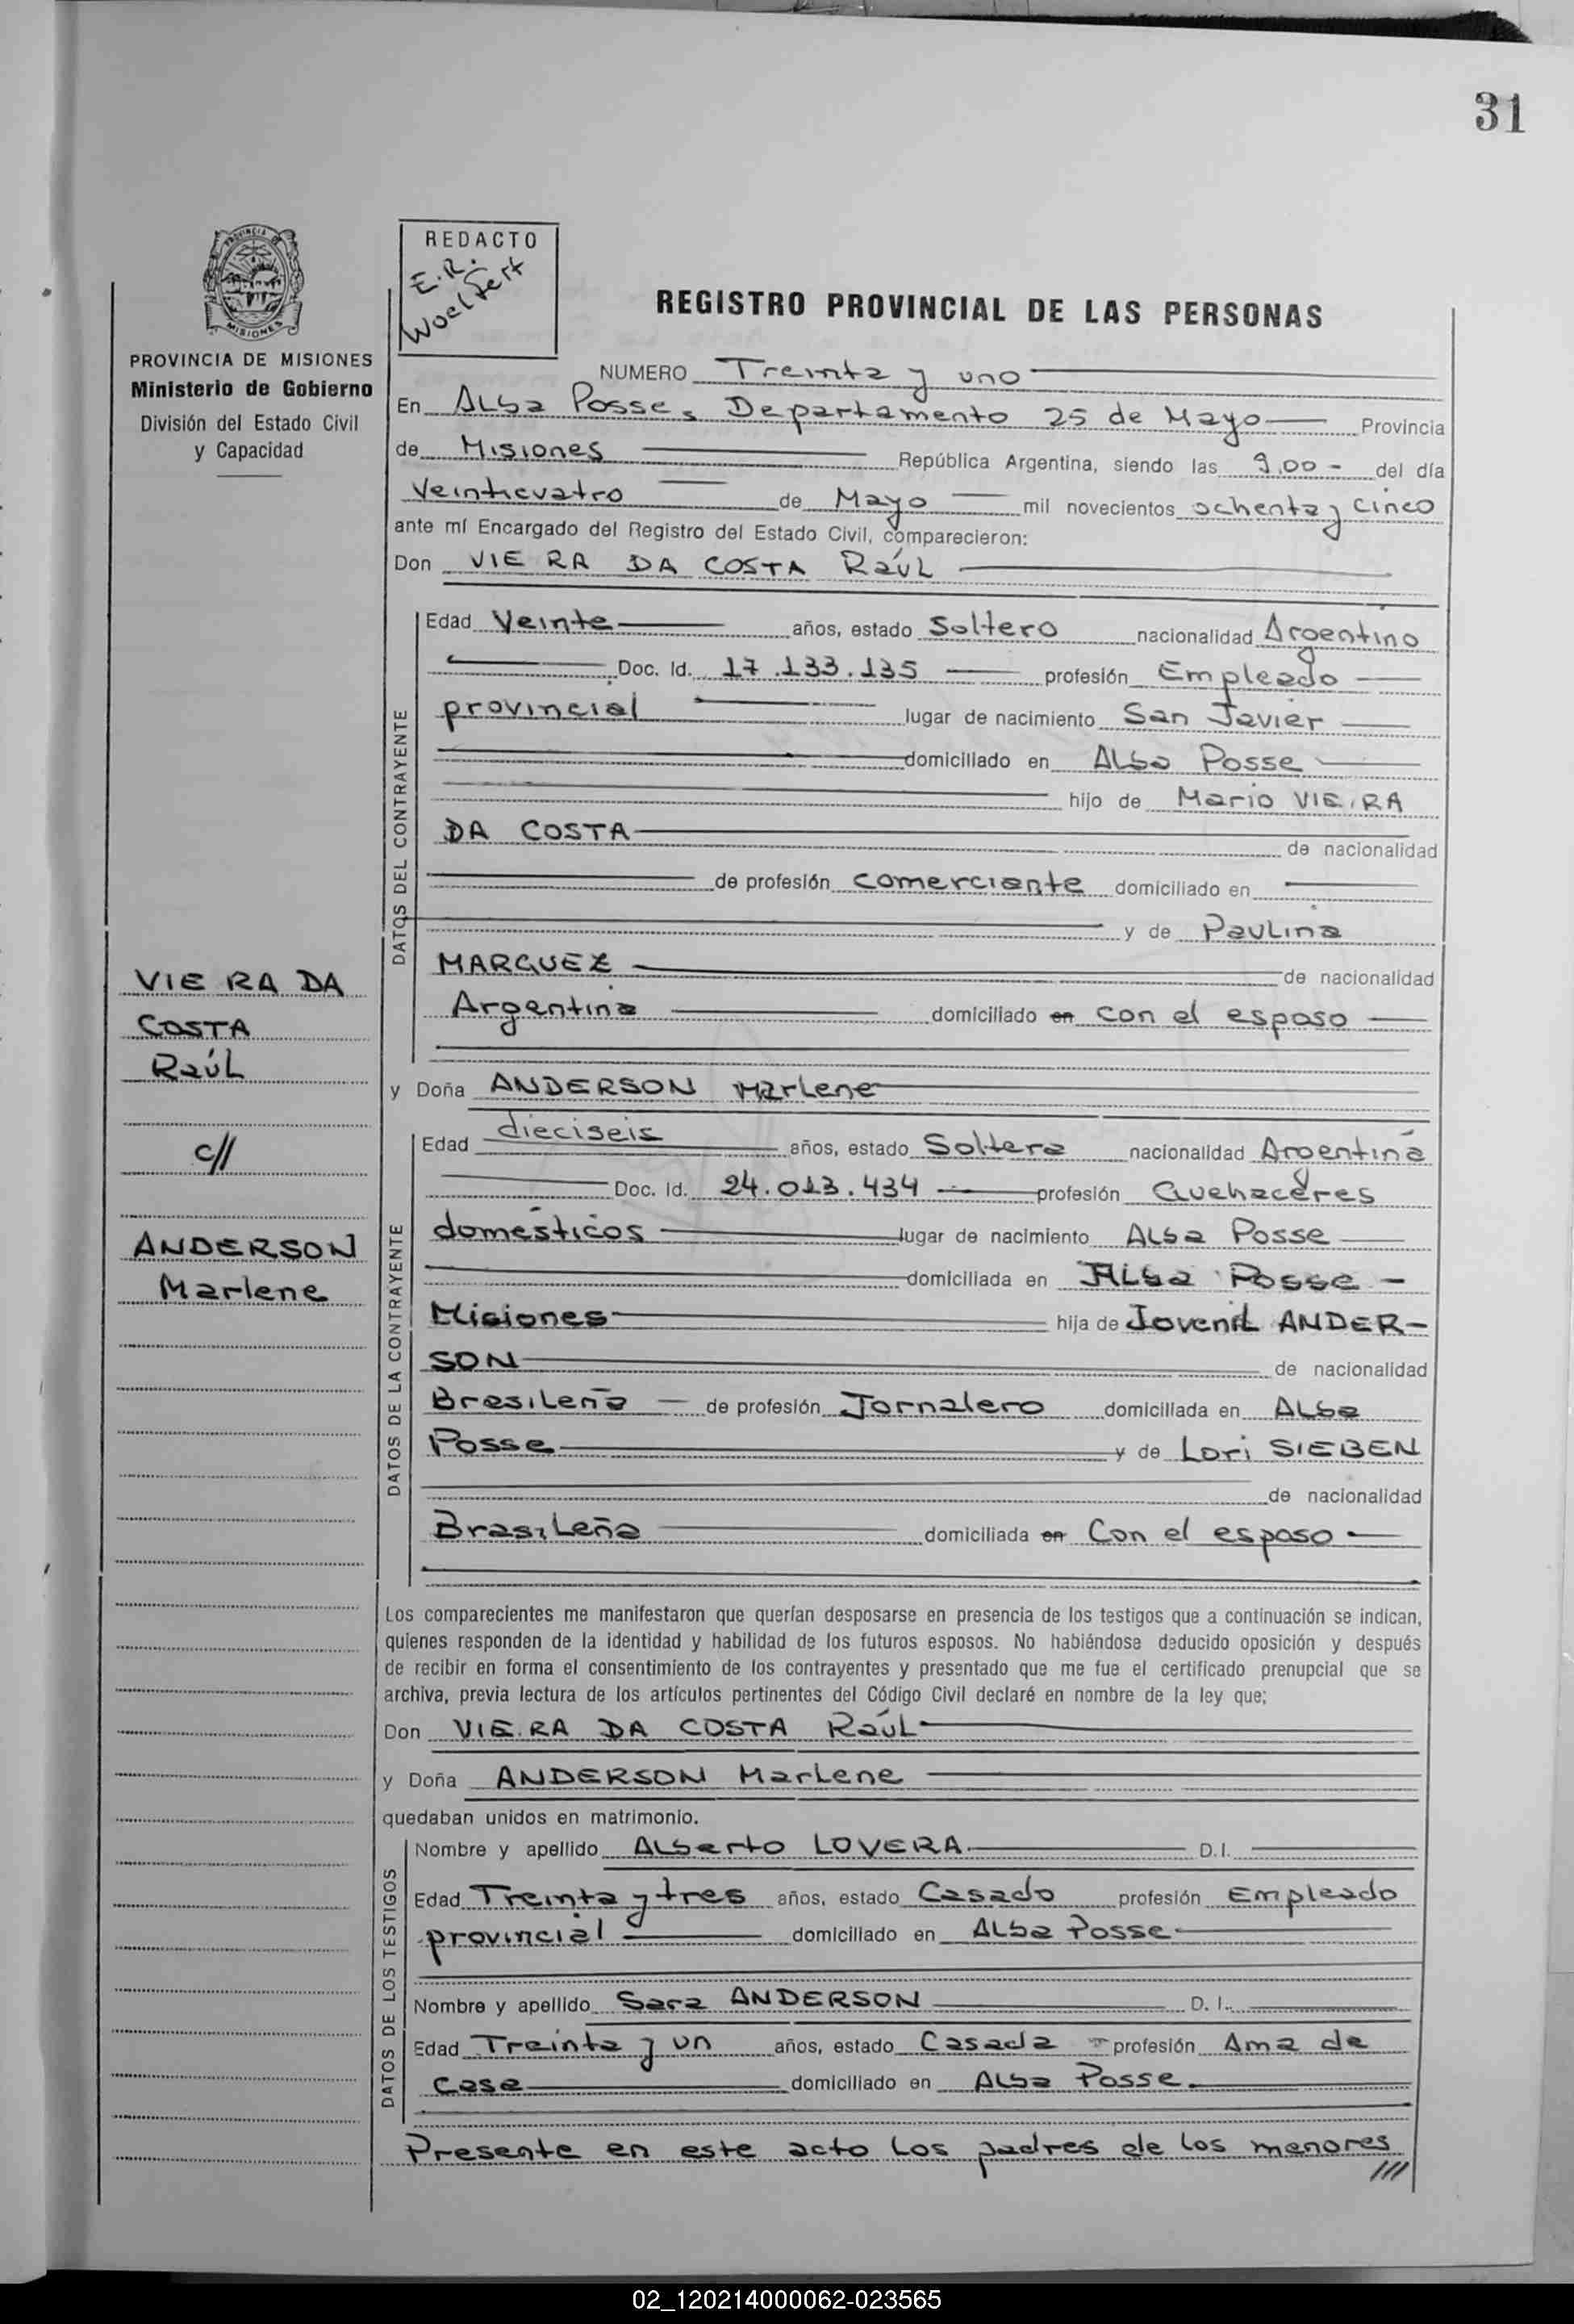 31
PROVINCIA DE MISIONES
PROVINCIA DE MISIONES
Ministerio de Gobierno
División del Estado Civil
y Capacidad
REDACTO
E.R.
Woelfert
REGISTRO PROVINCIAL DE LAS PERSONAS
NUMERO Treinta y uno
En Alba Posse, Departamento 25 de Mayo Provincia
de Misiones República Argentina, siendo las 9,00 - del día
Veinticuatro de Mayo mil novecientos ochenta y cinco
ante mí Encargado del Registro del Estado Civil, comparecieron:
Don VIEIRA DA COSTA Raúl
DATOS DEL CONTRAYENTE
Edad Veinte años, estado Soltero nacionalidad Argentino
Doc. Id. 17.133.135 profesión Empleado
provincial lugar de nacimiento San Javier
domiciliado en Alba Posse
hijo de Mario VIEIRA
DA COSTA de nacionalidad
de profesión comerciante domiciliado en
y de Paulina
MARQUEZ de nacionalidad
Argentina domiciliado en con el esposo
y Doña ANDERSON Marlene
DATOS DE LA CONTRAYENTE
Edad dieciseis años, estado Soltera nacionalidad Argentina
Doc. Id. 24.013.434 profesión Quehaceres
domésticos lugar de nacimiento Alba Posse
domiciliada en Alba Posse -
Misiones hija de Jovenil ANDER-
SON de nacionalidad
Brasileña de profesión Jornalero domiciliada en Alba
Posse y de Lori SIEBEN
de nacionalidad
Brasileña domiciliada en Con el esposo
VIEIRA DA
COSTA
Raúl
c//
ANDERSON
Marlene
Los comparecientes me manifestaron que querían desposarse en presencia de los testigos que a continuación se indican,
quienes responden de la identidad y habilidad de los futuros esposos. No habiéndose deducido oposición y después
de recibir en forma el consentimiento de los contrayentes y presentado que me fue el certificado prenupcial que se
archiva, previa lectura de los artículos pertinentes del Código Civil declaré en nombre de la ley que;
Don VIEIRA DA COSTA Raúl
y Doña ANDERSON Marlene
quedaban unidos en matrimonio.
DATOS DE LOS TESTIGOS
Nombre y apellido Alberto LOVERA D.I.
Edad Treinta y tres años, estado Casado profesión Empleado
provincial domiciliado en Alba Posse
Nombre y apellido Sara ANDERSON D. I.
Edad Treinta y un años, estado Casada profesión Ama de
Casa domiciliado en Alba Posse.
Presente en este acto los padres de los menores
///
02_120214000062-023565